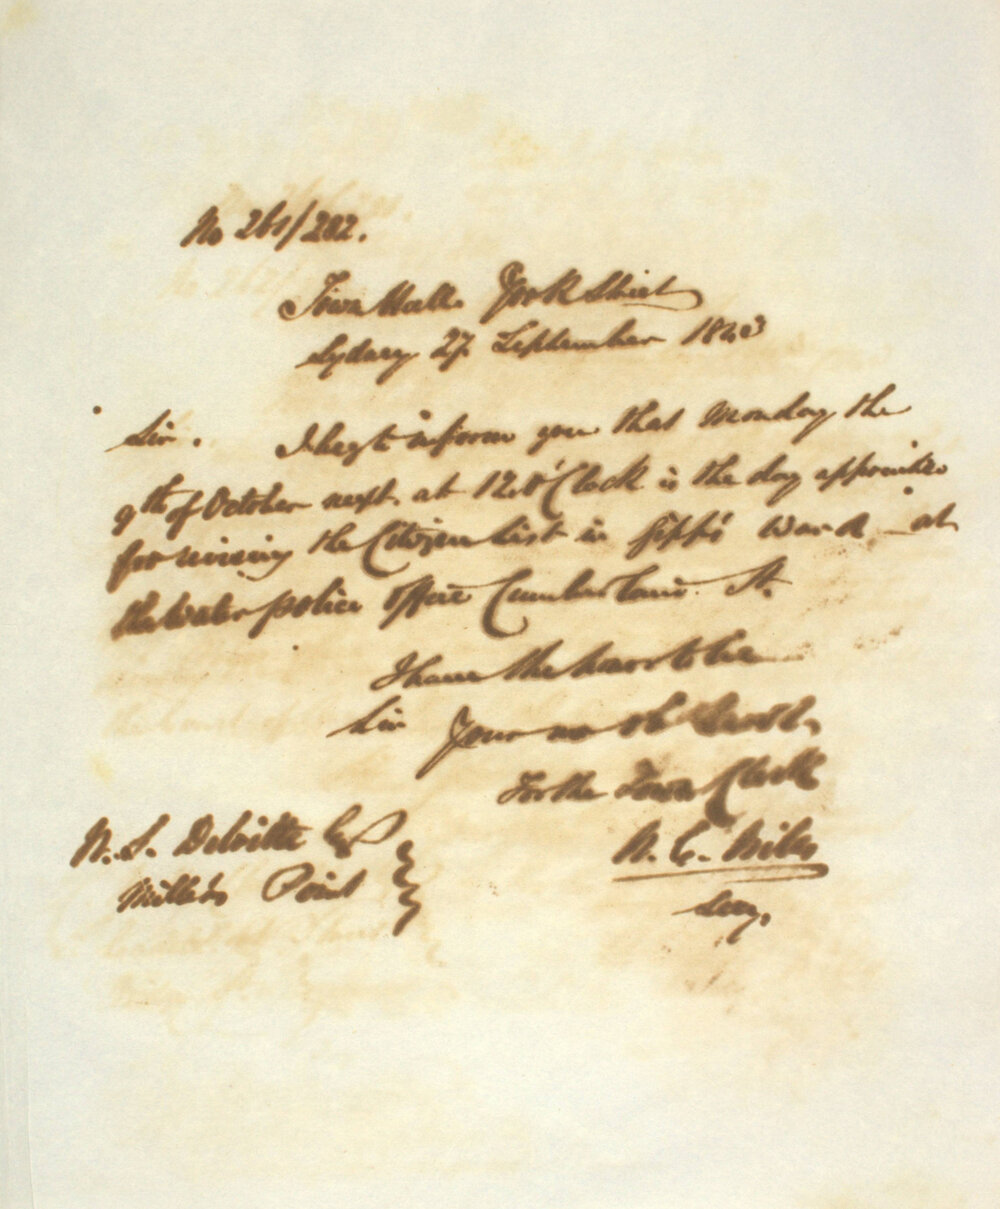 No 261/282.
Town Hall York Street
Sydney 27 September 1843
Sir. I beg to inform you that Monday the
9th of October next at 12 O'Clock is the day appointed
for revising the Citizen list in Gipps' Ward at
the Water police Office Cumberland St.
I have the honor to be
Sir Your mo ob Servt.
For the Town Clerk
W. S. Deloitte Esq
Millers Point
N. C. Niles